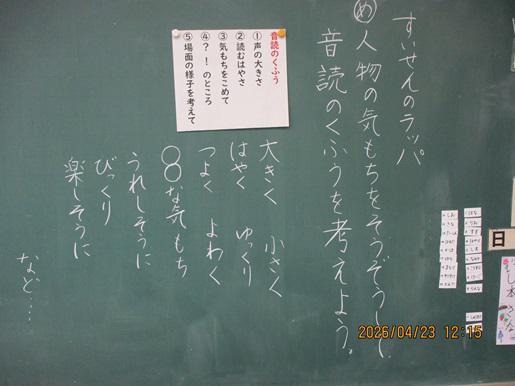 すいせんのラッパ
め 人物の気もちをそうぞうして、
音読のくふうを考えよう。
音読のくふう
①声の大きさ
②読むはやさ
③気もちをこめて
④？！のところ
⑤場面の様子を考えて
大きく 小さく
はやく ゆっくり
つよく よわく
○○な気もち
うれしそうに
びっくり
楽しそうに
など……
日
2026/04/23 12:15